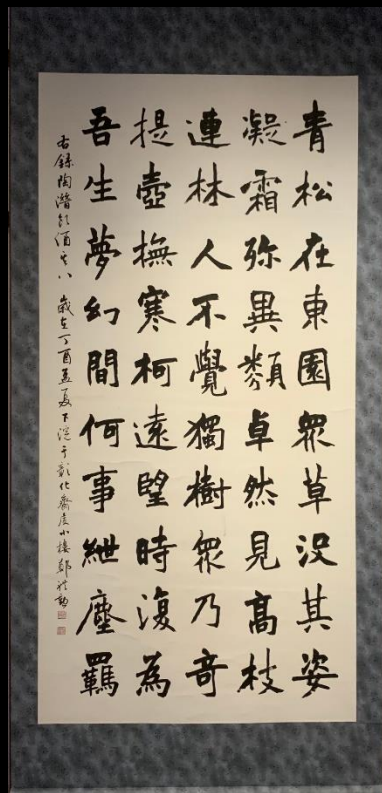 青松在東園眾草没其姿
凝霜殄異類卓然見高枝
連林人不覺獨樹眾乃奇
提壺撫寒柯遠望時復為
吾生夢幻間何事紲塵羈
右錄陶潛飲酒其八 歲在丁酉孟夏下浣于彰化齋虛小樓鄭禮勳